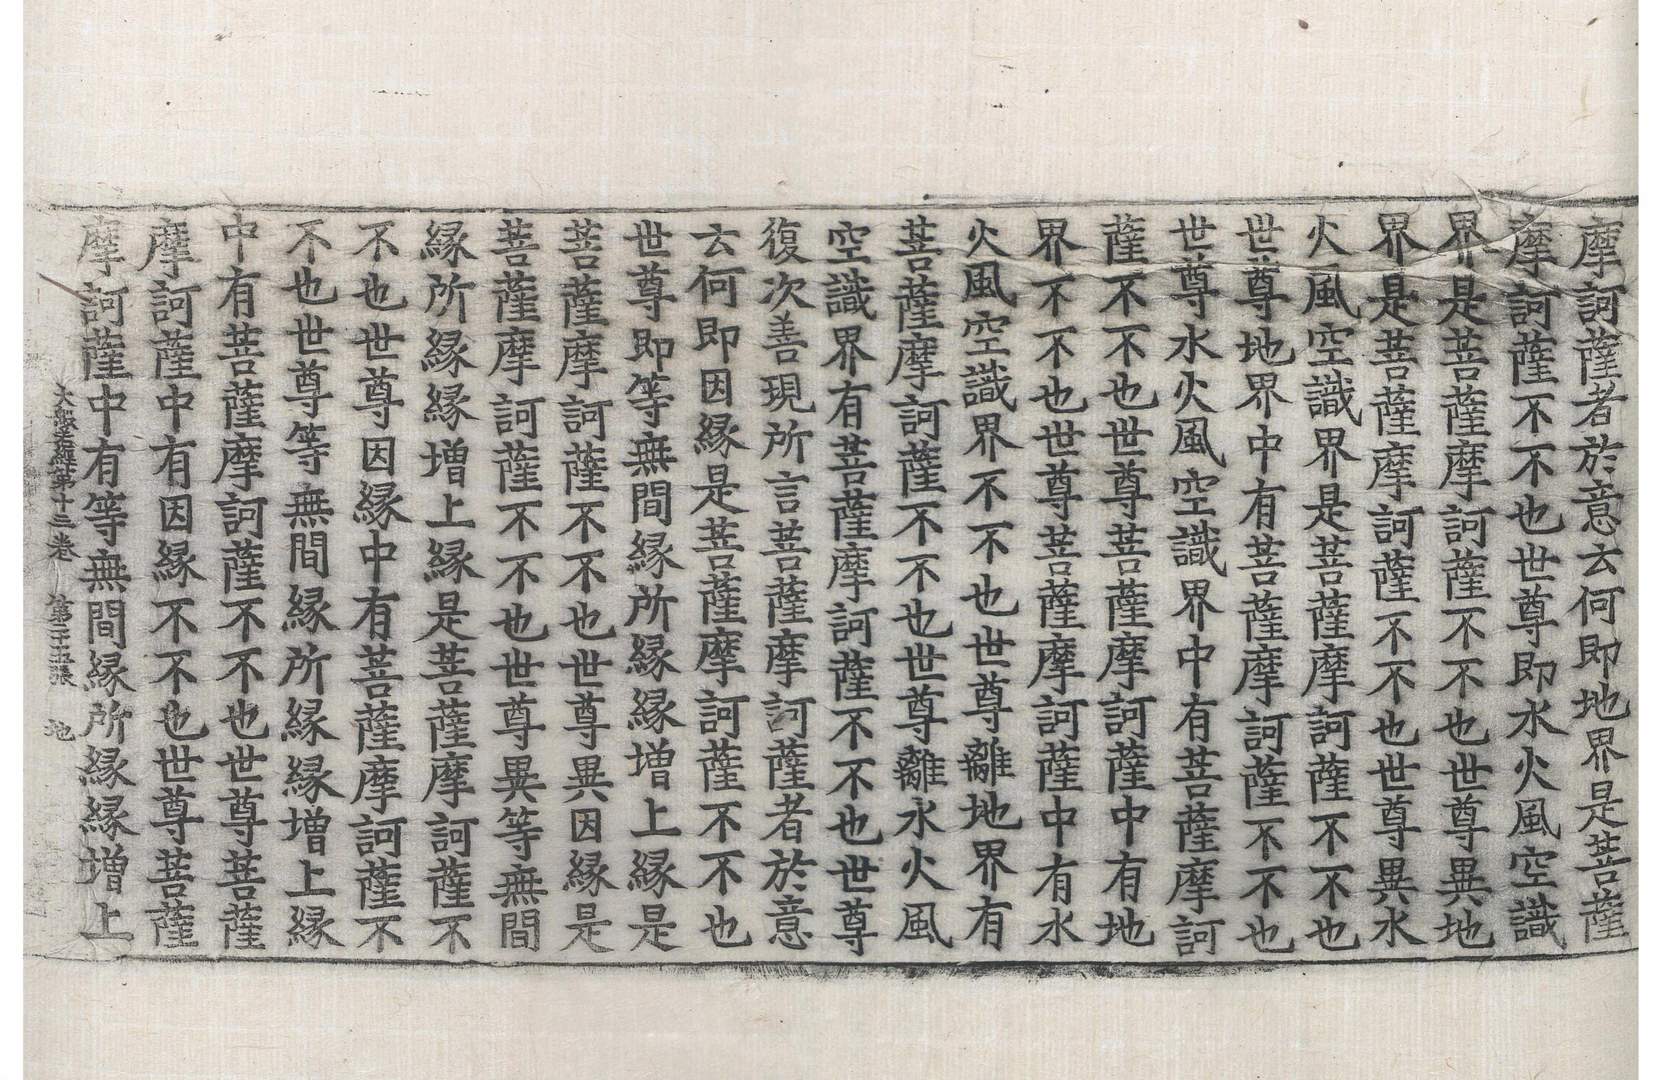 摩訶薩者於意云何即地界是菩薩
摩訶薩不不也世尊即水火風空識
界是菩薩摩訶薩不不也世尊異地
界是菩薩摩訶薩不不也世尊異水
火風空識界是菩薩摩訶薩不不也
世尊地界中有菩薩摩訶薩不不也
世尊水火風空識界中有菩薩摩訶
薩不不也世尊菩薩摩訶薩中有地
界不不也世尊菩薩摩訶薩中有水
火風空識界不不也世尊離地界有
菩薩摩訶薩不不也世尊離水火風
空識界有菩薩摩訶薩不不也世尊
復次善現所言菩薩摩訶薩者於意
云何即因縁是菩薩摩訶薩不不也
世尊即等無間縁所縁縁增上縁是
菩薩摩訶薩不不也世尊異因縁是
菩薩摩訶薩不不也世尊異等無間
縁所縁縁增上縁是菩薩摩訶薩不
不也世尊因縁中有菩薩摩訶薩不
不也世尊等無間縁所縁縁增上縁
中有菩薩摩訶薩不不也世尊菩薩
摩訶薩中有因縁不不也世尊菩薩
摩訶薩中有等無間縁所縁縁增上
大般若經第十二卷 第二十五張 地